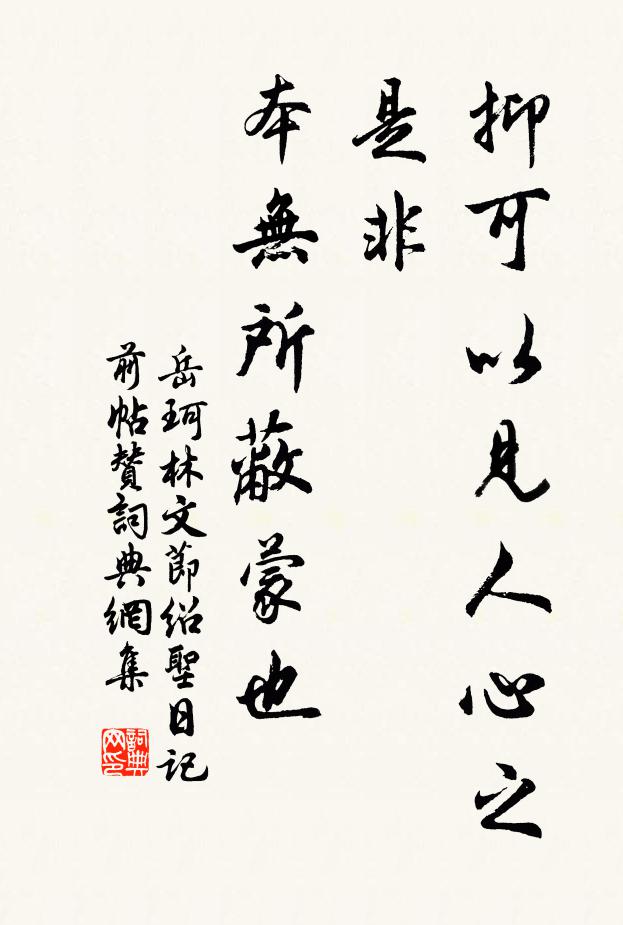 抑可以見人心之
是非
本無所蔽蒙也
岳珂林文節紹聖日記
前帖贊詞典網集
詞典
网印